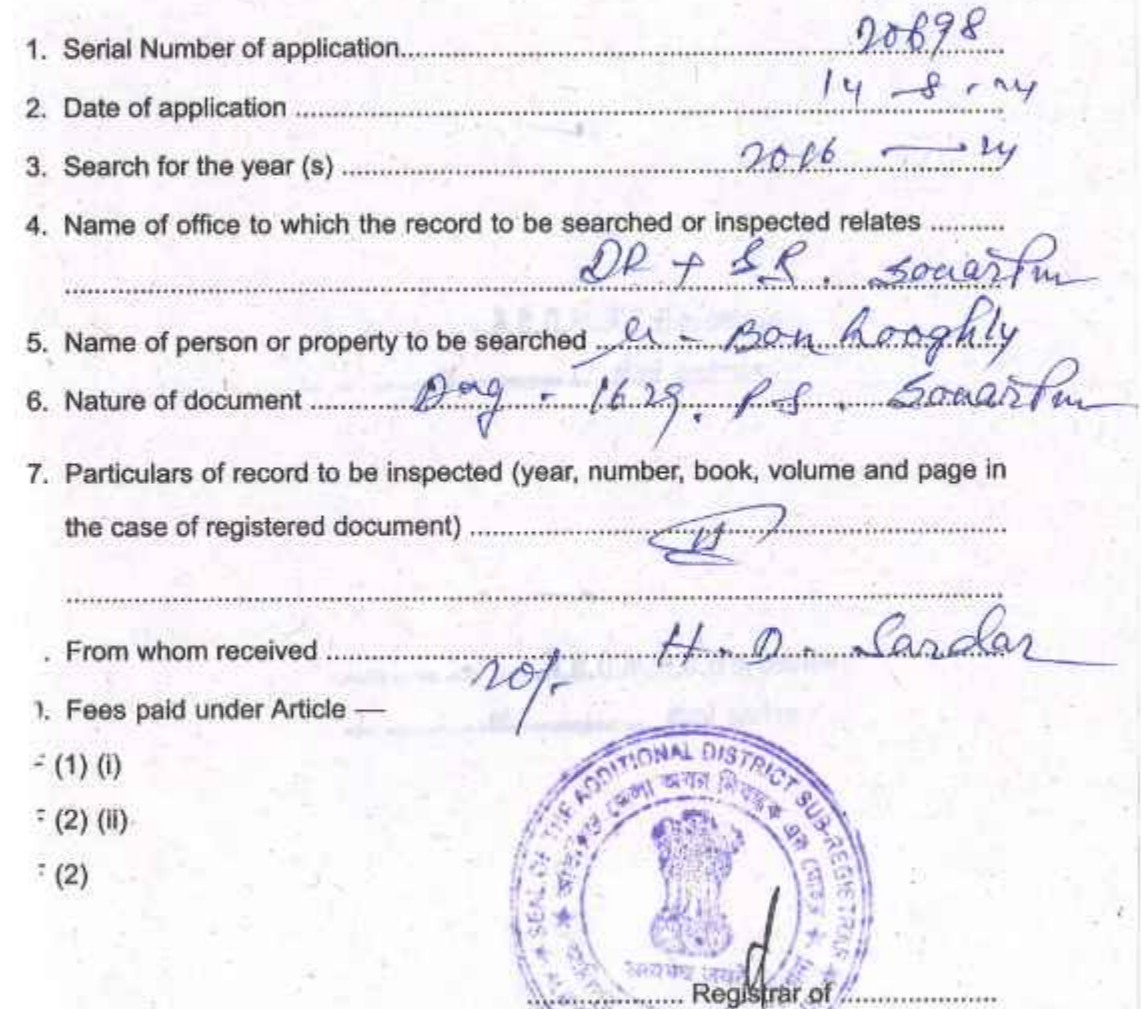 1. Serial Number of application.......... 20698
2. Date of application .......... 14 - 8 - 24
3. Search for the year (s) .......... 2016 — 24
4. Name of office to which the record to be searched or inspected relates ..........
DR + SR . Sonarpur
5. Name of person or property to be searched M - Bon hooghly
6. Nature of document .......... Dag - 1629 . P.S . Sonarpur
7. Particulars of record to be inspected (year, number, book, volume and page in
the case of registered document) ..........
. From whom received .......... H. D. Sardar
20/-
). Fees paid under Article —
(1) (i)
(2) (ii)
(2)
SEAL OF THE ADDITIONAL DISTRICT SUB-REGISTRAR
.......... Registrar of ..........